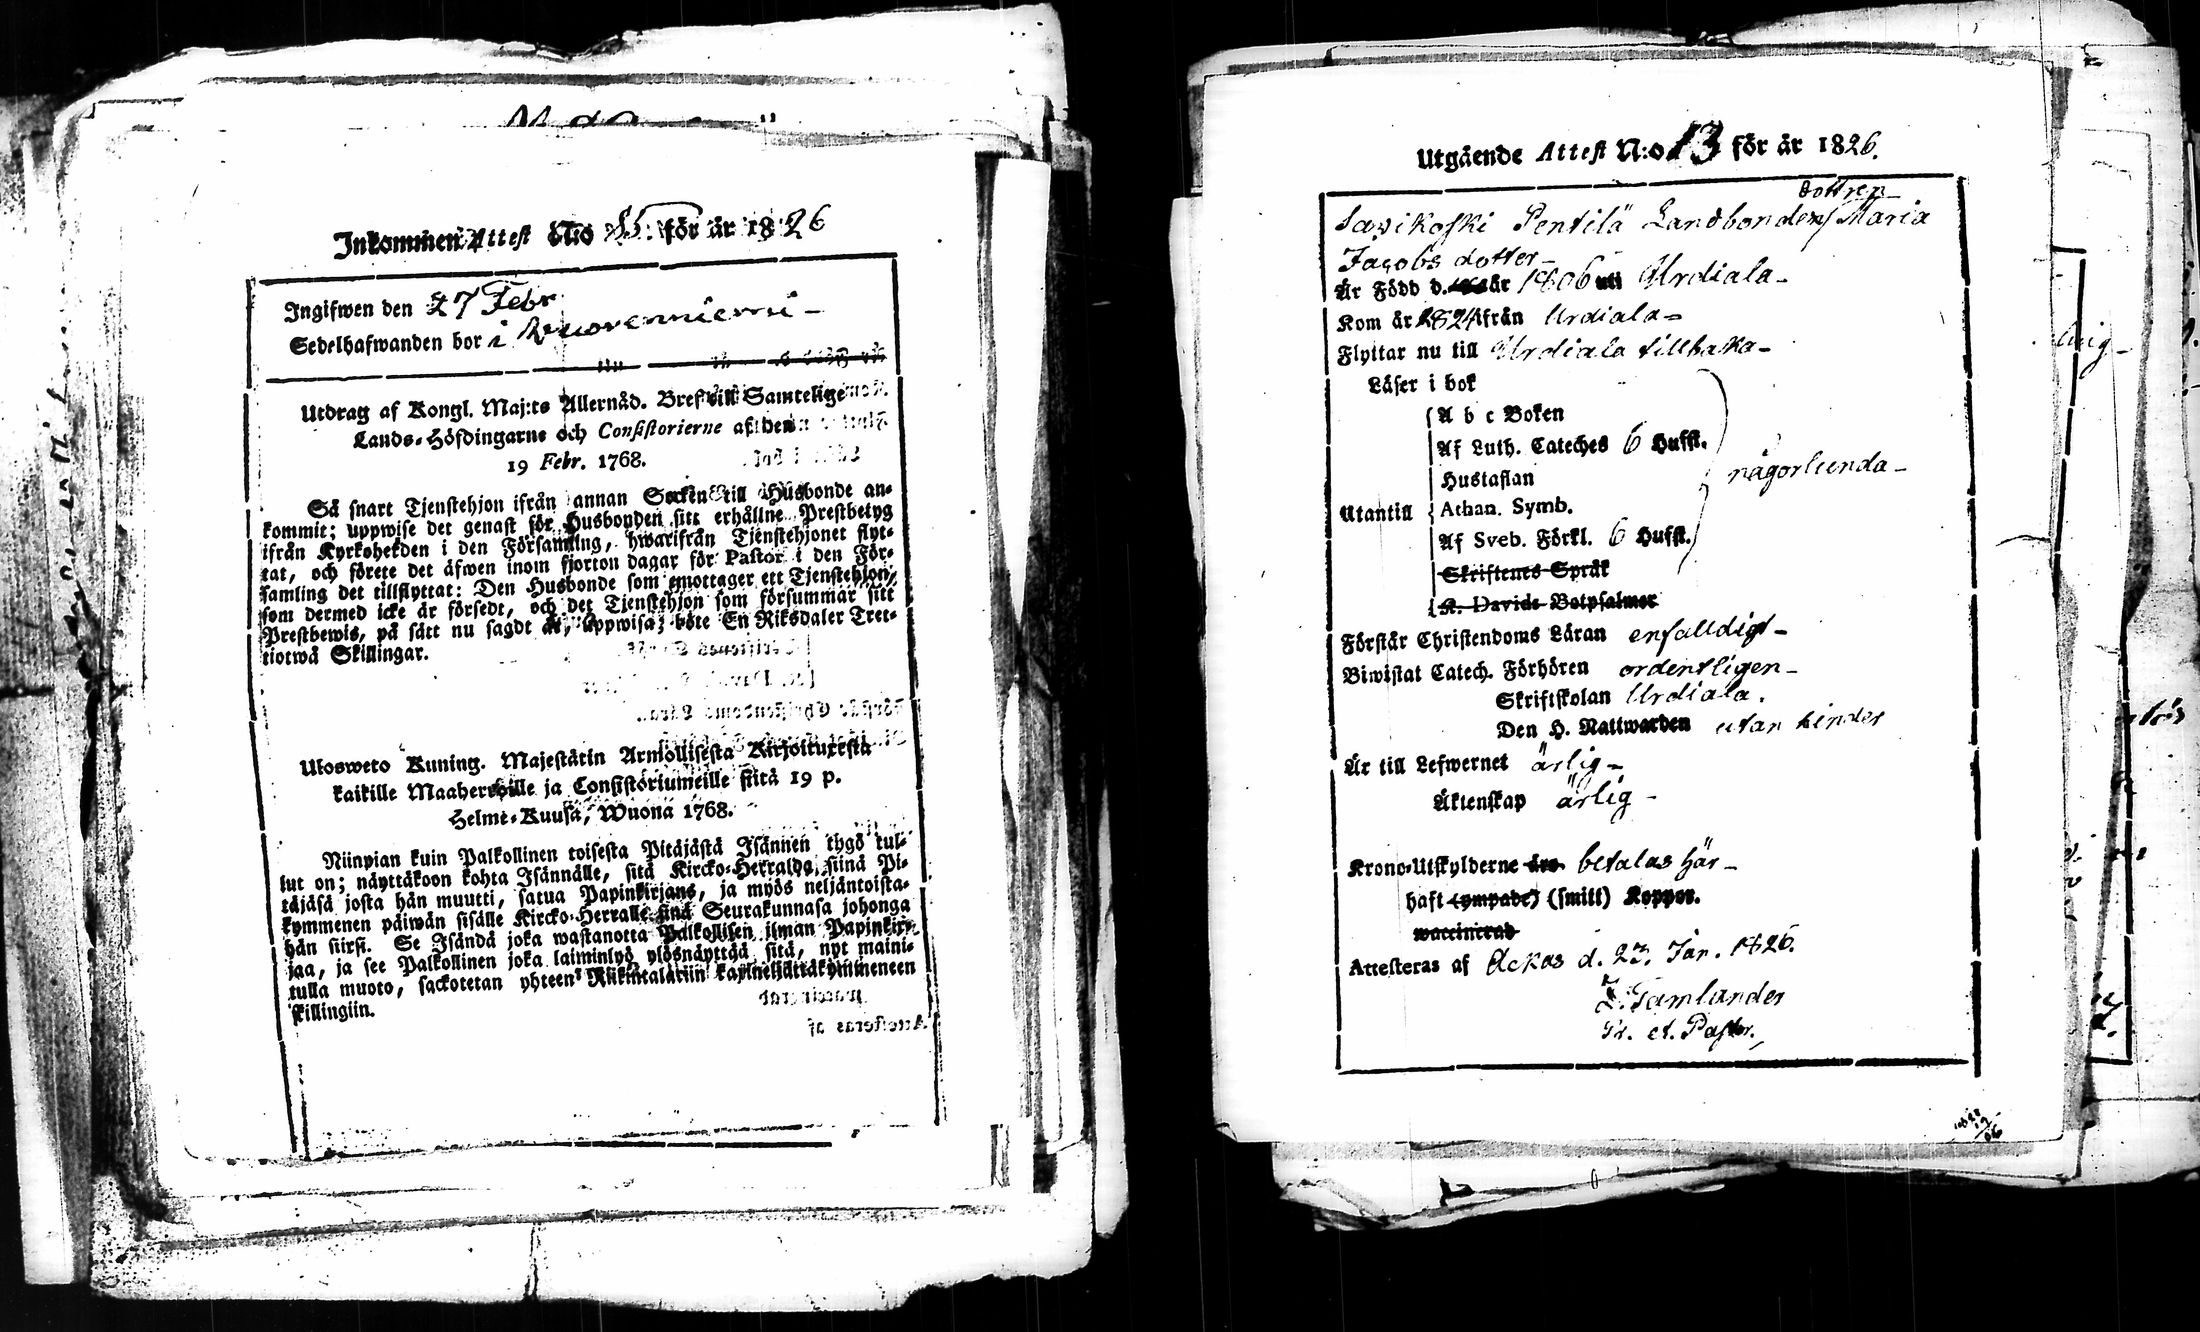 Inkommen Attest N:o 55. för år 1826
Ingifwen den 27 Febr
Sedelhafwanden bor i
Utdrag af Kongl. Maj:ts Allernåd. Bref till Samtelige
Lands-Höfdingarne och Consistorierne af den
19 Febr. 1768.
Så snart Tjenstehjon ifrån annan Socken till Husbonde an-
kommit; uppwise det genast för Husbonden sitt erhållne Prestbetyg
ifrån Kyrkoherden i den Församling, hwarifrån Tjenstehjonet flyt-
tat, och förete det äfwen inom fjorton dagar för Pastor i den För-
samling det tillflyttat: Den Husbonde som emottager ett Tjenstehjon,
som dermed icke är försedt, och det Tjenstehjon som försummar sitt
Prestbewis, på sätt nu sagdt är, uppwisa; böte En Riksdaler Tret-
tiotwå Skillingar.
Ulosweto Kuning. Majestätin Armollisesta Kirjoituxesta
kaikille Maaherroille ja Consistóriumeille siitä 19 p.
Helme-Kuusa, Wuona 1768.
Niinpian kuin Palkollinen toisesta Pitäjästä Isännen tygö tul-
lut on; näyttäkoon kohta Isännälle, sitä Kircko-Herralda siinä Pi-
täjäsä josta hän muutti, saatua Papinkirjans, ja myös neljäntoista-
kymmenen päiwän sisälle Kircko-Herralle siinä Seurakunnasa johonga
hän siirsi. Se Isändä joka wastanotta Palkollisen ilman Papinkir-
jaa, ja see Palkollinen joka laiminlyö ylösnäyttää sitä, nyt maini-
tulla muoto, sackotetan yhteen Riikintalariin kaxineljättäkymmeneen
skillingiin.
Utgående Attest N:o 13 för år 1826.
dottren
Sawikoski Pentilä Landbondens Maria
Jacobs dotter
Är Född d. år 1806 uti Urdiala
Kom år 1824 ifrån Urdiala
Flyttar nu till Urdiala tillbaka
Läser i bok
A b c Boken
Af Luth. Cateches 6 Hufst.
Hustaflan
någorlunda
Utantill Athan. Symb.
Af Sveb. Förkl. 6 Hufst.
Skriftenes Språk
K. Davids Botpsalmer
Förstår Christendoms Läran enfalldigt
Biwistat Catech. Förhören ordentligen
Skriftskolan Urdiala.
Den H. Nattwarden utan hinder
Är till Lefwernet ärlig
Äktenskap ärlig
Krono-Utskylderne äro betalas här
haft (ympade) (smitt) Koppor.
waccinerad
Attesteras af Ackas d. 23. Jan. 1826.
Gamlander
Pr. et. Pastor.